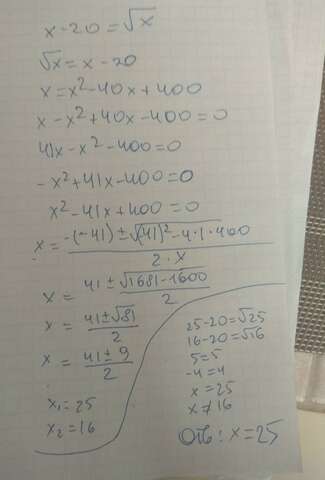 x-20=√x
√x=x-20
x=x²-40x+400
x-x²+40x-400=0
41x-x²-400=0
-x²+41x-400=0
x²-41x+400=0
x=-(-41)±√(41)²-4·1·400/2·x
x=41±√1681-1600/2
x=41±√81/2
x=41±9/2
x₁=25
x₂=16
25-20=√25
16-20=√16
5=5
-4=4
x=25
x≠16
Отв: x=25